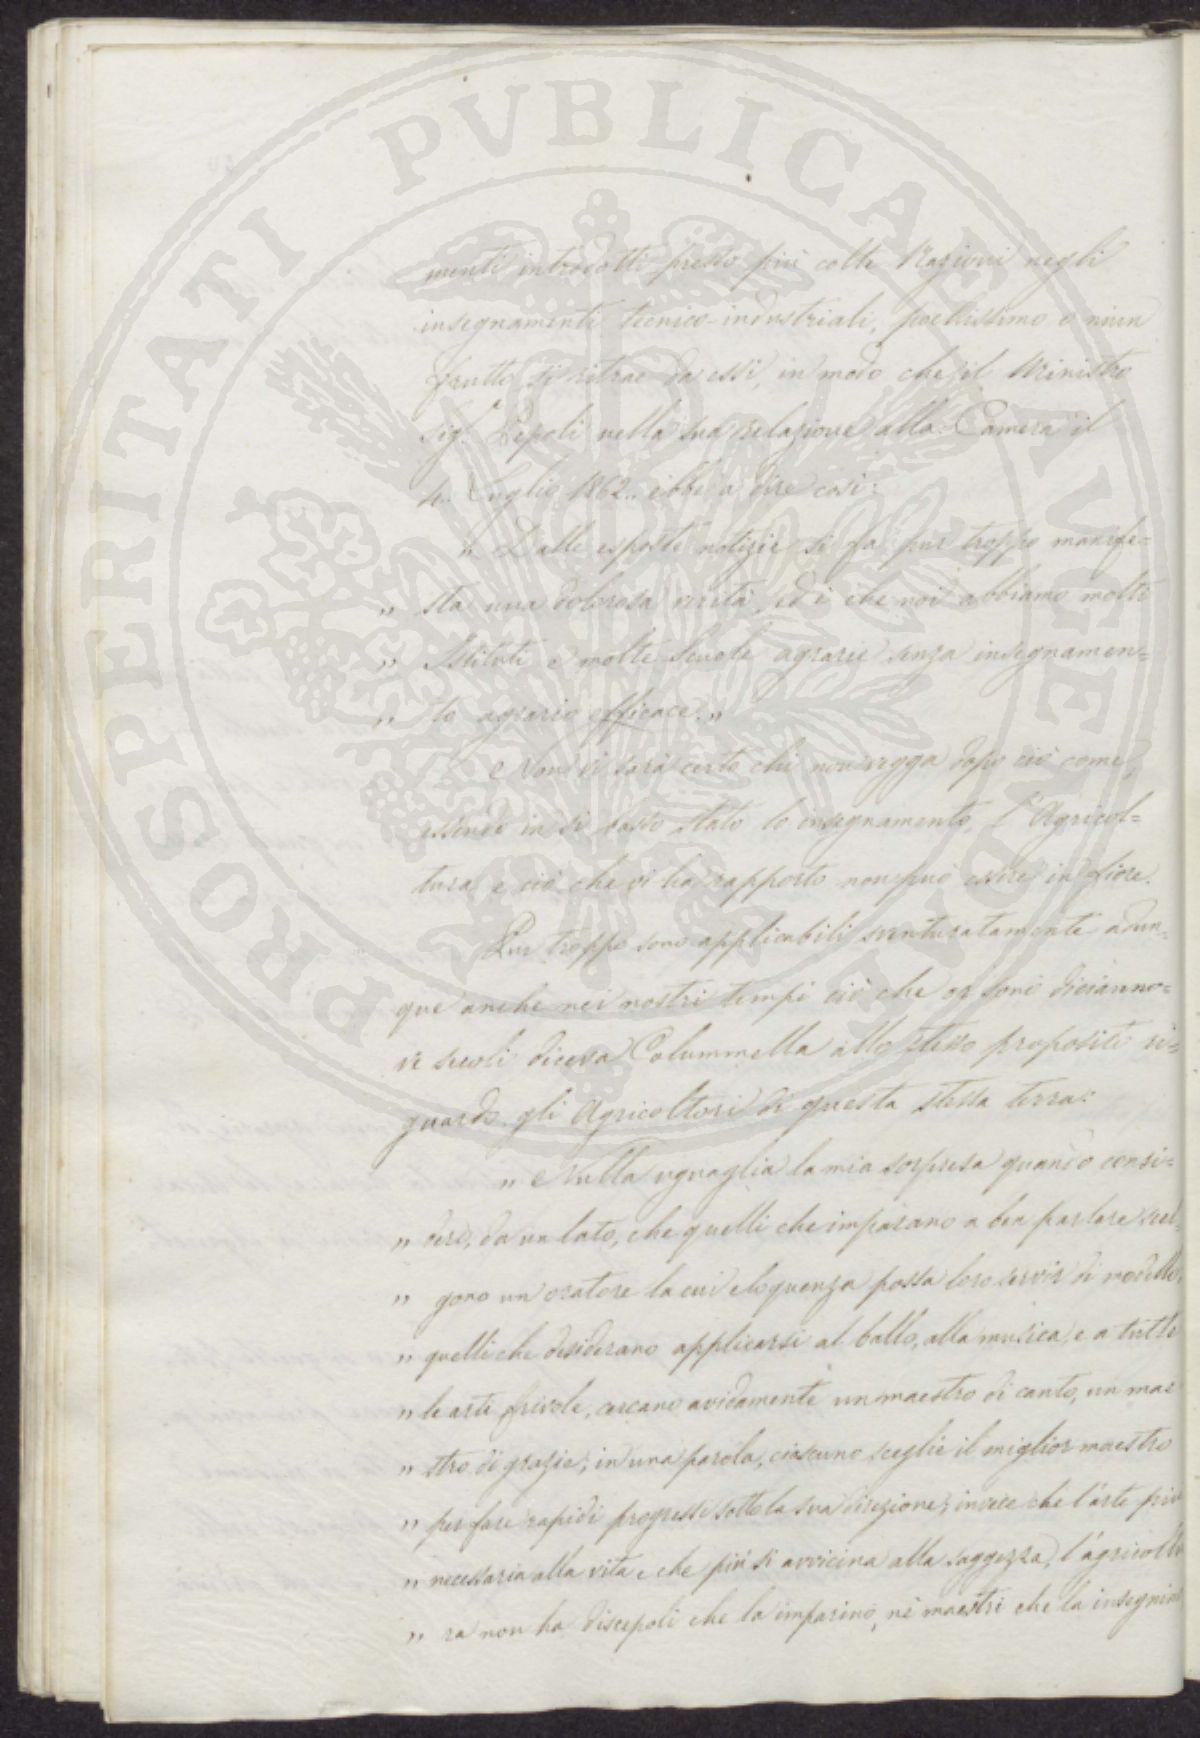 PROSPERITATI PVBLICAE AVGENDAE
menti introdotti presso più colte Nazioni negli
insegnamenti tecnico-industriali, pochissimo o niun
frutto si ritrae da essi, in modo che il Ministro
Sig.r Pepoli nella sua relazione alla Camera il
4. Luglio 1862. ebbe a dire così:
" Dalle esposte notizie si fa pur troppo manife=
" sta una dolorosa verità, ed è che noi abbiamo molti
" Istituti e molte Scuole agrarie senza insegnamen=
" to agrario efficace."
Non vi sarà certo chi non vegga dopo ciò come,
essendo in sì basso stato lo insegnamento, l'Agricol=
tura e ciò che vi ha rapporto non può essere in fiore.
Pur troppo sono applicabili sventuratamente adun=
que anche nei nostri tempi ciò che or sono dicianno=
ve secoli diceva Columnella allo stesso proposito ri=
guardo gli Agricoltori di questa stessa terra:
" Nulla uguaglia la mia sorpresa quando consi=
" dero, da un lato, che quelli che imparano a ben parlare scel=
" gono un oratore la cui eloquenza possa loro servir di modello,
" quelli che desiderano applicarsi al ballo, alla musica, e a tutte
" le arti frivole, cercano avidamente un maestro di canto, un mae
" stro di grazie; in una parola, ciascuno sceglie il miglior maestro
" per fare rapidi progressi sotto la sua direzione; invece che l'arte più
" necessaria alla vita e che più si avvicina alla saggezza, l'agricoltu
" ra non ha discepoli che la imparino, nè maestri che la insegnino